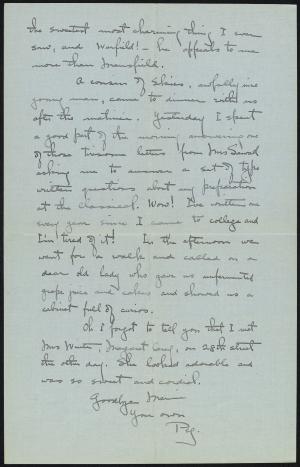 the sweetest most charming thing I ever
saw, and Warfield! – he appeals to me
more than Mansfield.
A cousin of Elsie's, awfully nice
young man, came to dinner with us
after the matinee. Yesterday I spent
a good part of the morning answering one
of those tiresome letters from Mrs
asking me to answer a set of type
written questions about my preparation
at the classical. Wow! I've written one
every year since I came to college and
I'm tired of it! In the afternoon we
went for a walk and called on a
dear old lady who gave us unfermented
grape juice and cakes and showed us a
cabinet full of curios.
Oh I forgot to tell you that I met
Mrs Winter, Margaret, on 28th street
the other day. She looked adorable and
was so sweet and cordial.
Goodbye
Your own
Peg.